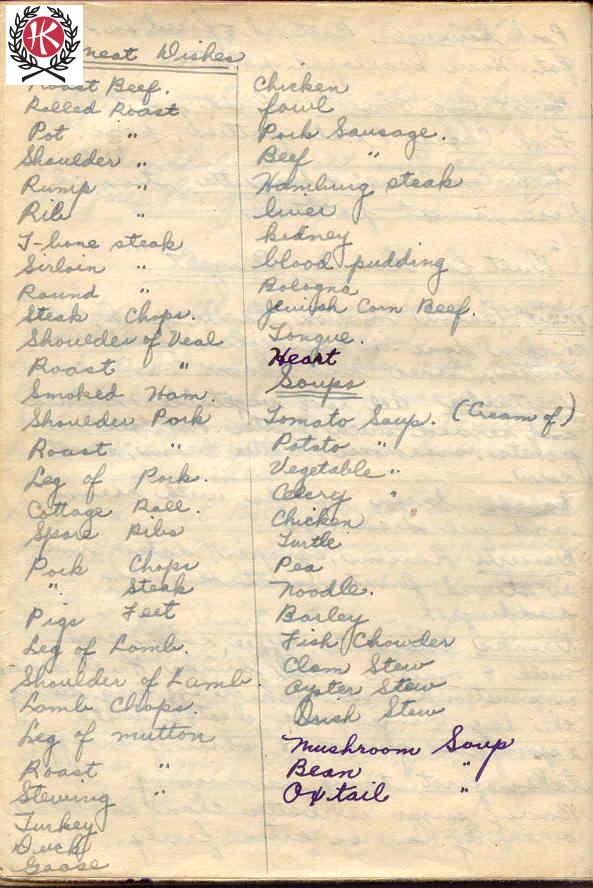 HK
Meat Dishes
Roast Beef.
Rolled Roast
Pot "
Shoulder "
Rump "
Rib "
T-bone steak
Sirloin "
Round "
Steak Chops.
Shoulder of Veal
Roast "
Smoked Ham.
Shoulder Pork
Roast "
Leg of Pork.
Cottage Roll.
Spare Ribs
Pork Chops
" Steak
Pigs Feet
Leg of Lamb.
Shoulder of Lamb.
Lamb Chops.
Leg of mutton
Roast "
Stewing "
Turkey
Duck
Goose
Chicken
fowl
Pork Sausage.
Beef "
Hamburg steak
liver
kidney
blood pudding
Bologna
Jewish Corn Beef.
Tongue.
Heart
Soups
Tomato Soup. (Cream of)
Potato "
Vegetable "
Celery "
Chicken
Turtle
Pea
Noodle.
Barley
Fish Chowder
Clam Stew
Oyster Stew
Stew
Mushroom Soup
Bean "
Oxtail "